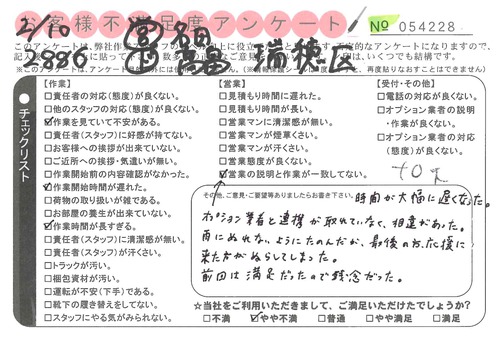 お客様不満足度アンケート
№ 054228
2/10
2886
瑞穂区
このアンケートは、弊社作業
※このアンケートは
チェックリスト
【作業】
□責任者の対応(態度)が良くない。
□他のスタッフの対応(態度)が良くない。
☑作業を見ていて不安がある。
□責任者(スタッフ)に好感が持てない。
□お客様への挨拶が出来ていない。
□ご近所への挨拶・気遣いが無い。
□作業開始前の内容確認がなかった。
☑作業開始時間が遅れた。
□荷物の取り扱いが雑である。
□お部屋の養生が出来ていない。
☑作業時間が長すぎる。
□責任者(スタッフ)に清潔感が無い。
□責任者(スタッフ)が汗くさい。
□トラックが汚い。
□梱包資材が汚い。
□運転が不安(下手)である。
□靴下の履き替えをしてない。
□スタッフにやる気がみられない。
【営業】
□見積もり時間に遅れた。
□見積もり時間が長い。
□営業マンに清潔感が無い。
□営業マンが煙草くさい。
□営業マンが汗くさい。
□営業態度が良くない。
☑営業の説明と作業が一致してない。
【受付・その他】
□電話の対応が良くない。
□オプション業者の説明
・作業が良くない。
□オプション業者の対応
(態度)が良くない。
その他、ご意見・ご要望等ありましたらお書き下さい。
時間が大幅に遅くなった。
オプション業者と連携が取れていなく、相違があった。
雨にぬれないようにたのんだが、最後の応援に
来た方がぬらしてしまった。
前回は満足だったので残念だった。
☆当社をご利用いただきまして、ご満足いただけたでしょうか?
□不満 ☑やや不満 □普通 □やや満足 □満足